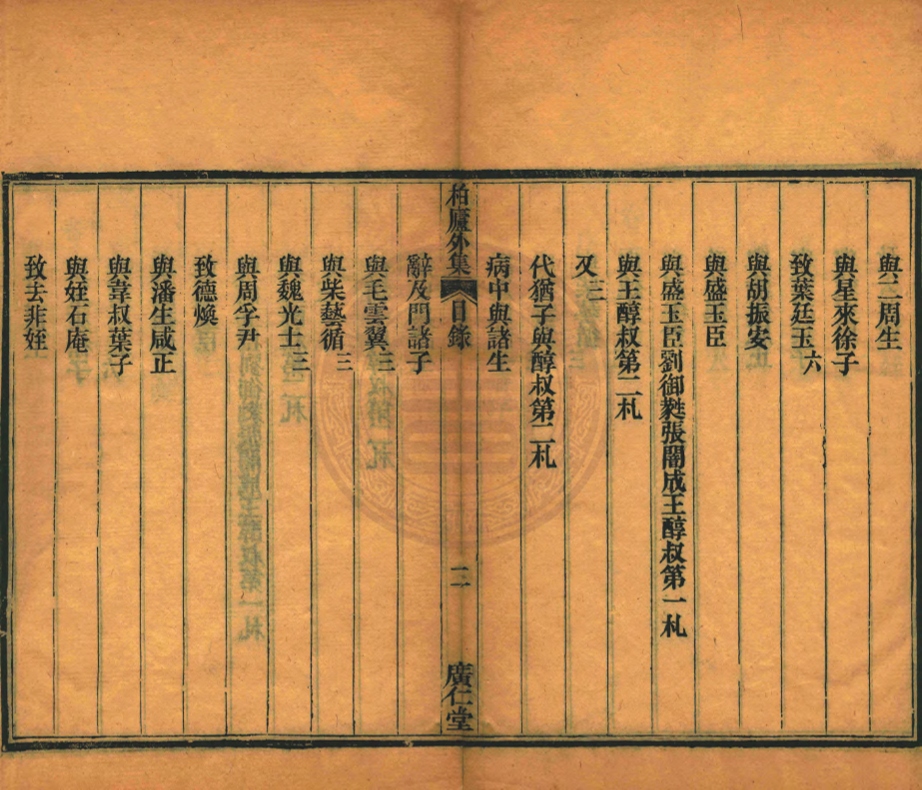 與二周生
與星來徐子
致葉廷玉六
與胡振安
與盛玉臣
與盛玉臣劉御㲠張闇成王醇叔第一札
與王醇叔第二札
又三
代猶子與醇叔第二札
病中與諸生
柏廬外集 目錄 二 廣仁堂
辭及門諸子
與毛雲翼三
與柴藝循三
與魏光士三
與周孚尹
致德煥
與潘生咸正
與韋叔葉子
與姪石庵
致去非姪